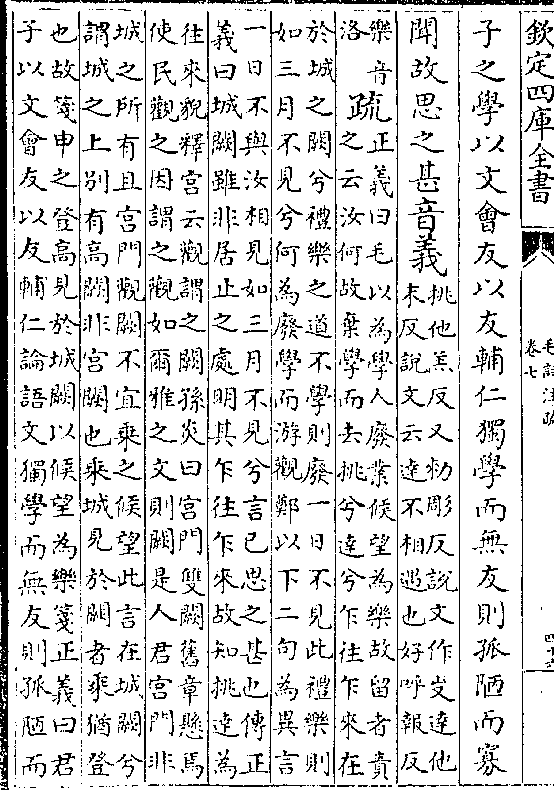 欽定四庫全書
毛詩注疏
卷七
子之學以文會友以友輔仁獨學而無友則孤陋而寡
聞故思之甚音義
挑他羔反又勑彫反說文作叏達他
末反說文云達不相遇也好呼報反
樂音
洛
疏
正義曰毛以為學人廢業候望為樂故留者責
之云汝何故棄學而去挑兮達兮乍往乍來在
於城之闕兮禮樂之道不學則廢一日不見此禮樂則
如三月不見兮何為廢學而游觀鄭以下二句為異言
一日不與汝相見如三月不見兮言已思之甚也傳正
義曰城闕雖非居止之處明其乍往乍來故知挑達為
往來貌釋宮云觀謂之闕孫炎曰宮門雙闕舊章懸焉
使民觀之因謂之觀如爾雅之文則闕是人君宮門非
城之所有且宮門觀闕不宜乘之候望此言在城闕兮
謂城之上别有高闕非宮闕也乘城見於闕者乘猶登
也故箋申之登高見於城闕以候望為樂箋正義曰君
子以文會友以友輔仁論語文獨學而無友則孤陋而